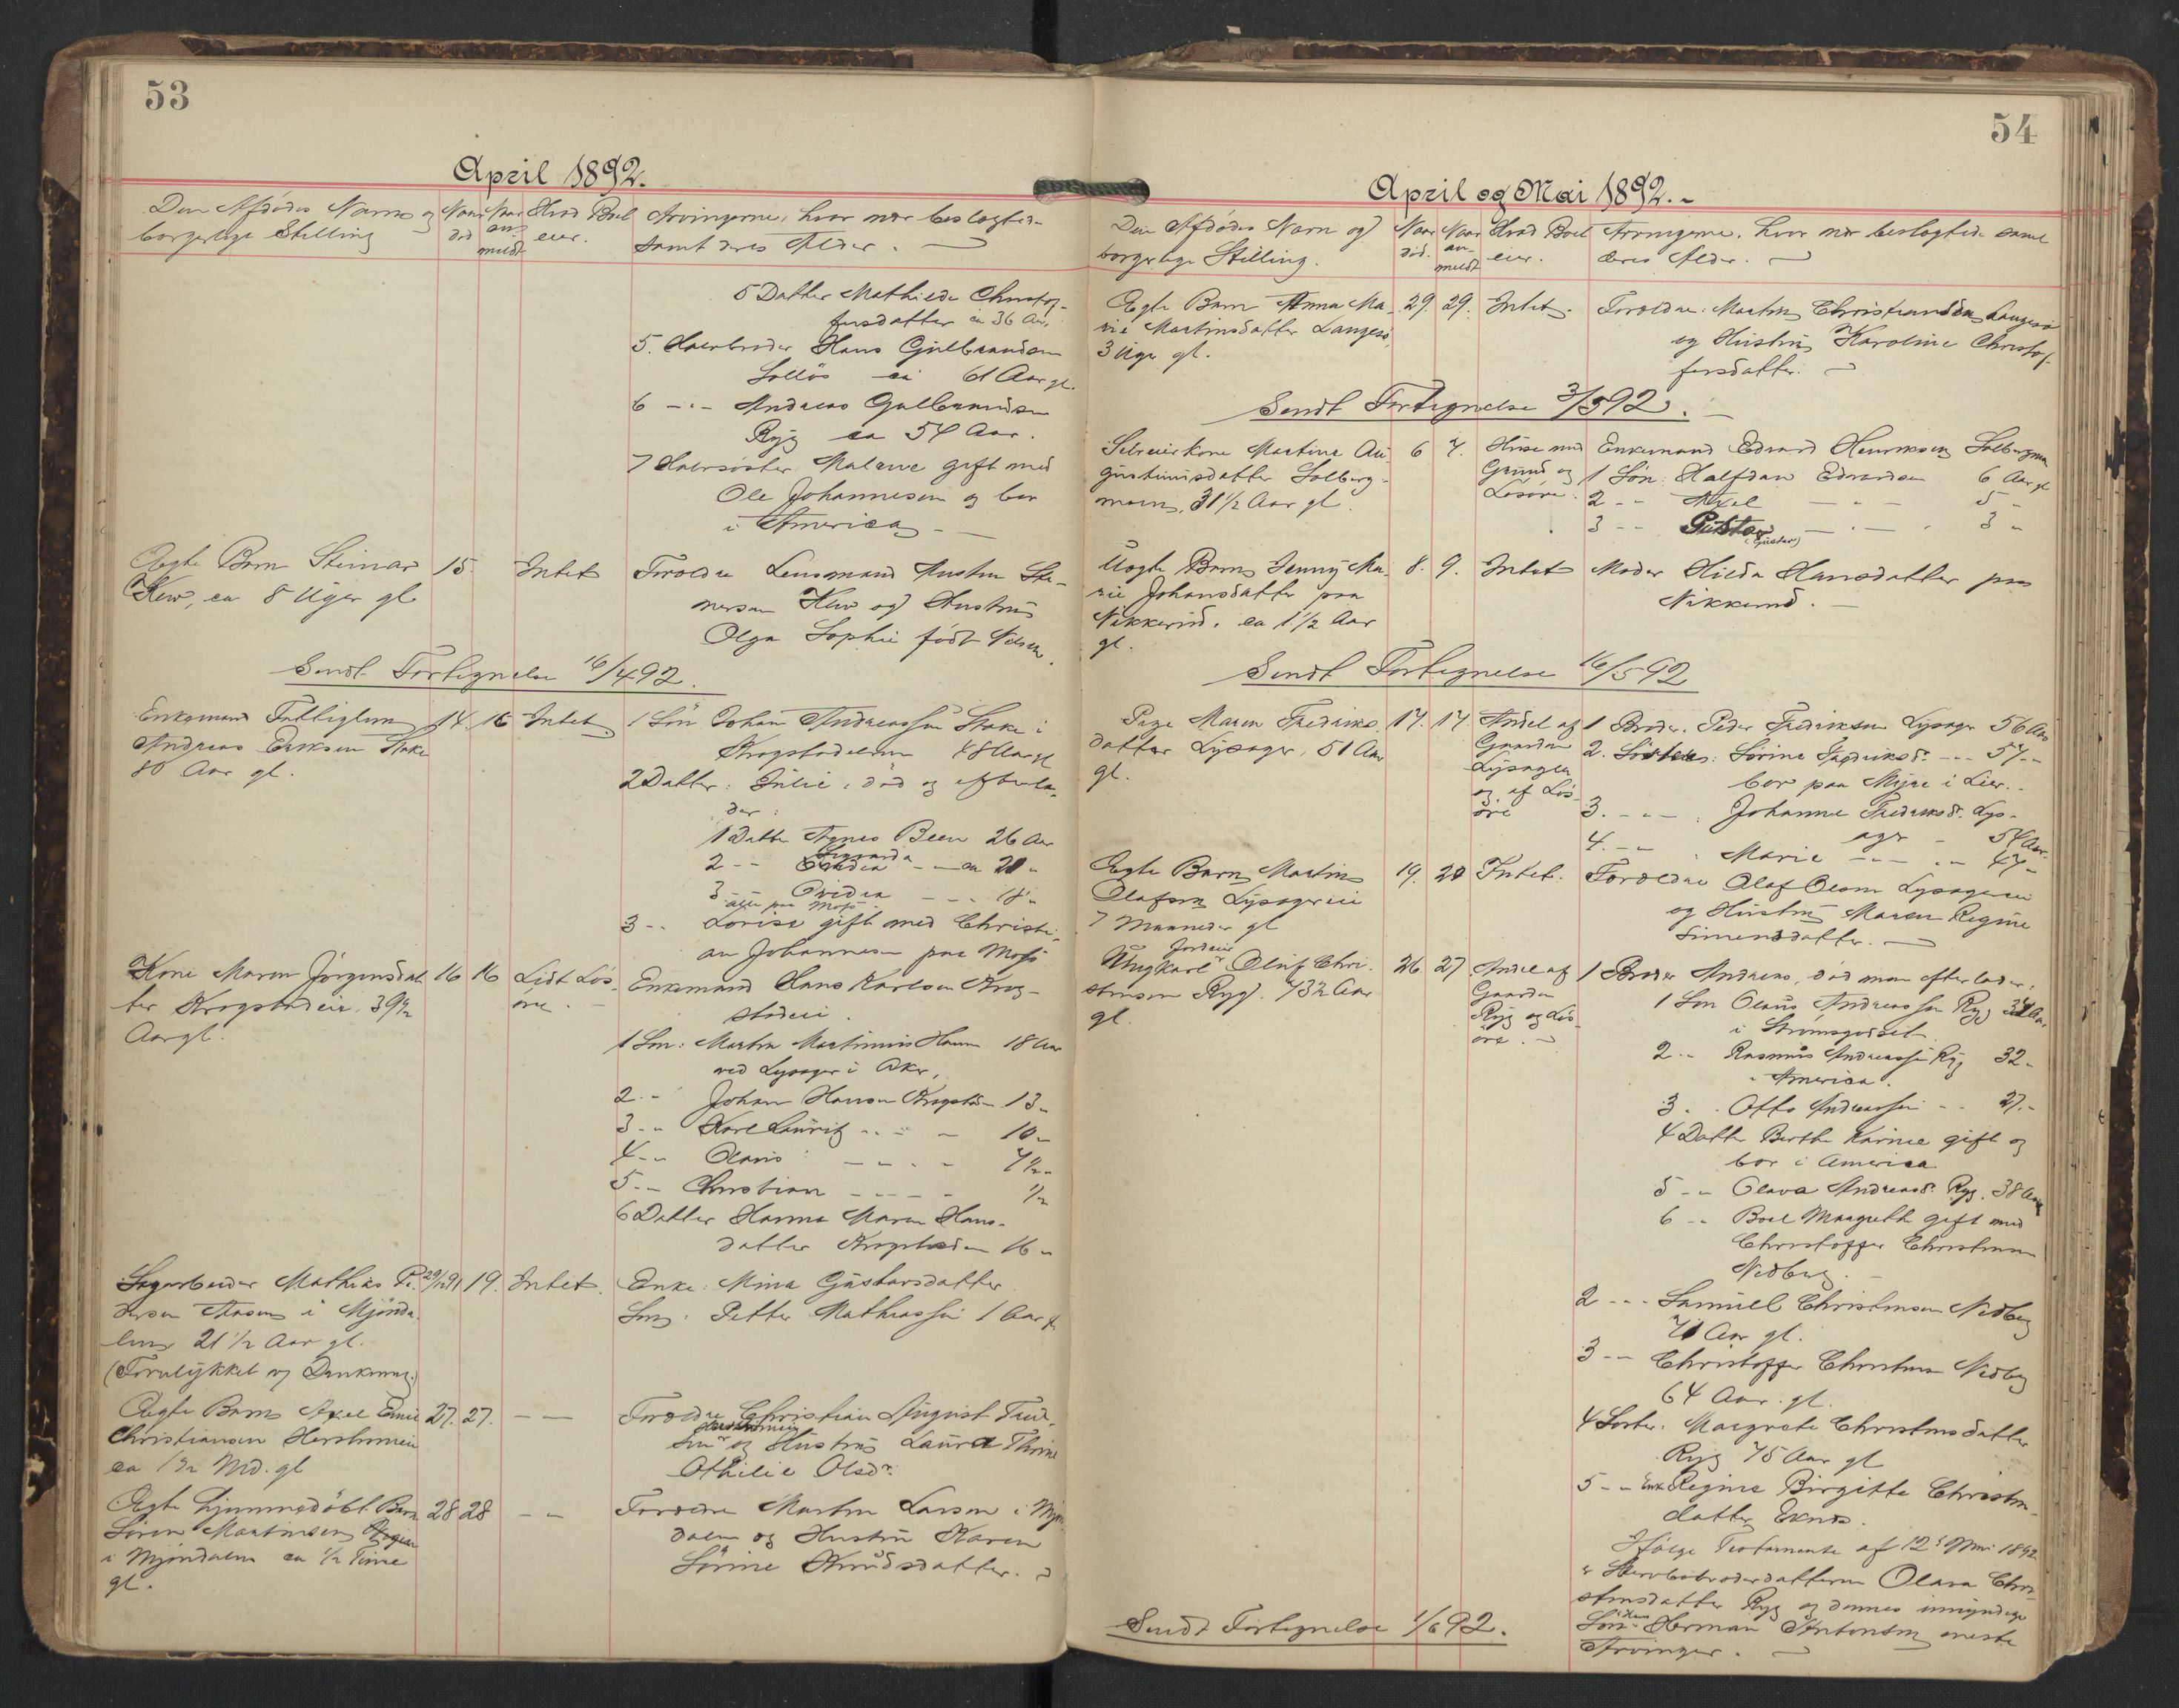 53
April 1892.
Den Afdødes Navn og
borgerlige Stilling
Naar
død
Naar
an-
meldt
Hvad Boet
eier.
Arvingerne, hvor nær beslægtede
samt deres Alder.
5 Datter Mathilde Christof-
fersdatter ca 36 Aar.
5. Halvbroder Hans Gulbrandsen
Solløs ca 61 Aar gl.
6 -"- Andreas Gulbrandsen
Ryg ca 54 Aar.
7 Halvsøster Malene gift med
Ole Johannesen og bor
i America
Ægte Barn Steinar
Kew, ca 8 Uger gl
15.
Intet
Forældre Lensmand Austin Ste-
nersen Kew og Hustru
Olga Sophie født Nilsen.
Sendt Fortegnelse 16/4 92.
Enkemand Fattiglem
Andreas Eriksen Stoke
80 Aar gl.
14. 16 Intet
1 Søn Johan Andreassen Stoke i
Krogstadelven 48 Aar gl
2 Datter: Julie, død og efterla-
der:
1 Datter Agnes Been 26 Aar
2 -"- ca 20 "
3 -"- Ovidia -"- 18 "
alle paa Moss
3 -"- Lovise gift med Christi-
an Johannesen paa Moss
Kone Maren Jørgensdat-
ter Krogstadeie, 39 1/2
Aar gl.
16 16 Lidt Løs-
øre.
Enkemand Hans Karlsen Krog-
stadeie.
1 Søn: Martin Martinius Hansen 18 Aar
ved Lysager i Aker,
2 -"- Johan Hansen Krogstad- 13 "
3 -"- Karl Lauritz -"- 10 "
4 -"- Olaus -"- 7 1/2 "
5 -"- Christian -"- 1/2
6 Datter Hanna Maren Hans-
datter Krogstadei 16 "
Sagarbeider Mathias Pe-
dersen Aasen i Mjønda-
len 21 1/2 Aar gl.
(Forulykket og Druknet.)
29/12 91 19. Intet.
Enke: Mina Gustavsdatter
Søn: Petter Mathiassen 1 Aar gl
Ægte Barn Axel Emil
Christiansen Horstmeie
ca 1 1/2 Md. gl
27. 27. - -
Forældre Christian August
og Hustru Laura Thrine
Othilie Olsdr.
Ægte hjemmedøbt Barn
Søren Martinsen
i Mjøndalen ca 1/2 Time
gl.
28 28 - -
Forældre Martin Larsen i Mjøn-
dalen og Hustru Karen
Sørine Knudsdatter.
54
April og Mai 1892.-
Den Afdødes Navn og
borgerlige Stilling.
Naar
død.
Naar
an-
meldt
Hvad Boet
eier.
Arvingerne, hvor nær beslægtede samt
deres Alder.
Ægte Barn Anna Ma-
rie Martinsdatter Langesø,
3 Uger gl.
29. 29. Intet.
Forældre: Martin Christiansen Langesø
og Hustru Karoline Christof-
fersdatter.
Sendt Fortegnelse 3/5 92.
Selveierkone Martine Au-
gustinusdatter Solberg-
moen, 31 1/2 Aar gl.
6 7. Huse med
Grund og
Løsøre.
Enkemand Edvard Henriksen Solbergmoen
1 Søn: Halfdan Edvardsen 6 Aar gl
2 -"- Axel -"- 5 "
3 -"- Gustav -"- 3 "
(Gustav)
Uægte Barn Jenny Ma-
rie Johansdatter paa
Nikkerud, ca 1 1/2 Aar
gl.
8. 9. Intet
Moder Hilda Hansdatter paa
Nikkerud.
Sendt Fortegnelse 16/5 92
Pige Maren Fredriks-
datter Lysager, 51 Aar
gl.
17. 17. Andel af
Gaarden
Lysager
og af Løs-
øre
1 Broder. Peder Fredriksen Lysager 56 Aar
2. Søster: Sørine Fredriksd. -"- 57 "
bor paa Myre i Lier.
3. -"- Johanne Fredriksd. Lys-
ager - 54 Aar.
4. -"- Marie -"- 47 "
Ægte Barn Martin
Olafsen Lysagereie
7 Maaneder gl
19. 20 Intet.
Forældre Olaf Olsen Lysagereie
og Hustru Maren Regine
Simensdatter.
Jordeier
Ungkarl Oluf Chri-
stensen Ryg. 73 1/2 Aar
gl.
26. 27 Andel af
Gaarden
Ryg og Løs-
øre.
1 Broder Andreas, død men efterlader,
1 Søn Olaus Andreassen Ryg Aar
i Strømsgodset.
2 -"- Rasmus Andreassen Ryg 32 "
" America.
3 -"- Otto Andreassen -"- 27 "
4 Datter Berthe Karine gift og
bor i America
5 -"- Olava Andreasd. Ryg. 38 Aar
6 -"- Boel Maagrethe gift med
Christoffer Christensen
Nedberg.
2 -"- Samuel Christensen Nedberg
71 Aar gl.
3 -"- Christoffer Christensen Nedberg
64 Aar gl.
4 Søster. Margrete Christensdatter
Ryg 75 Aar gl
5 -"- Enke Regine Birgitte Christens-
datter Eknes.
Ifølge Testamente af 12te Mai 1892
er Stervbobroderdatteren Olava Chri-
stensdatter Ryg og dennes umyndige
Søn Herman Antonsen eneste
Arvinger.
Sendt Fortegnelse 1/6 92.